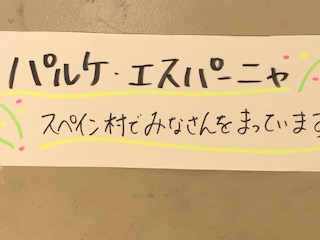 パルケ・エスパーニャ
スペイン村でみなさんをまっています